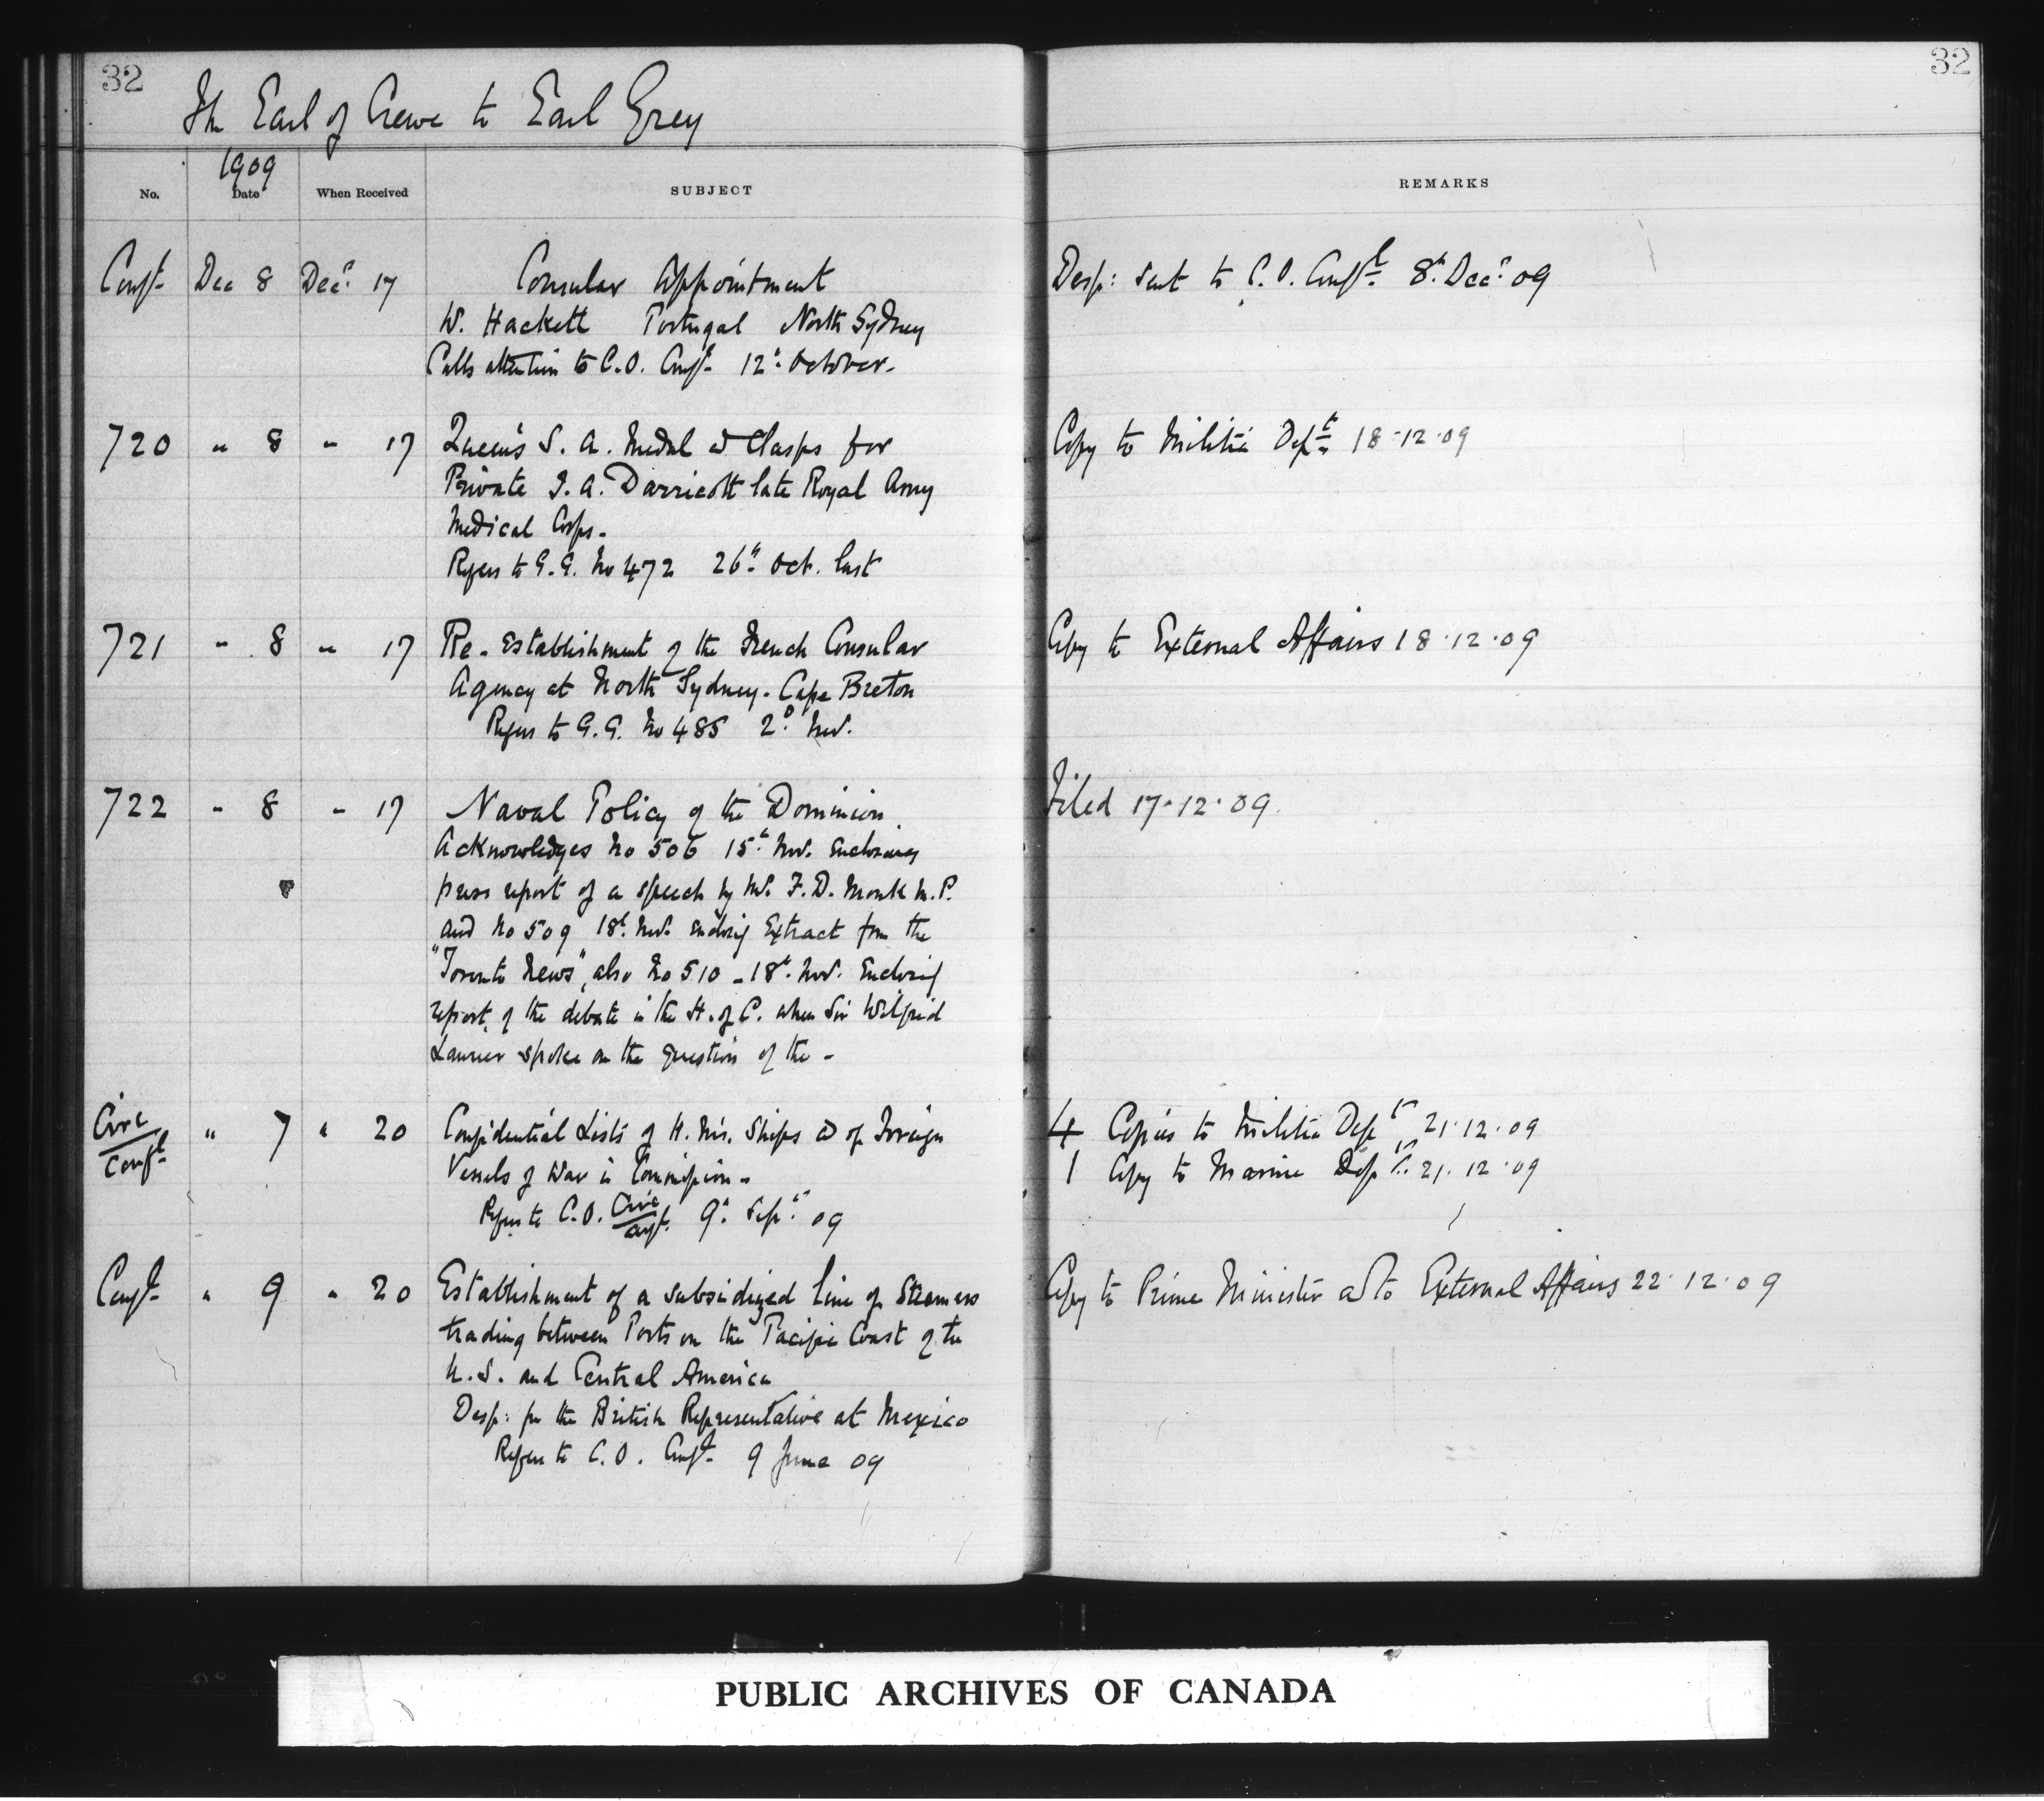 32
32
The Earl of Crewe to Earl Grey
1909
No. Date When Received SUBJECT REMARKS
Conf.t Dec 8 Dec.r 17 Consular Appointment Desp: sent to C.O. Conf.tl 8th Dec.r 09
W. Hackett Portugal North Sydney
Calls attention to C.O. Conf.t 12th October.
720 " 8 " 17 Queen's S. A. Medal & Clasps for Copy to Militia Dept 18.12.09
Private J. A. Darricott late Royal Army
Medical Corps.
Refers to G.G. No 472 26th Oct. last
721 " 8 " 17 Re-establishment of the French Consular Copy to External Affairs 18.12.09
Agency at North Sydney. Cape Breton
Refers to G.G. No 485 2d Nov.
722 " 8 " 17 Naval Policy of the Dominion Filed 17.12.09.
Acknowledges No 506 15th Nov. enclosing
press report of a speech by Mr. F. D. Monk M.P.
and No 509 18th Nov. enclosing Extract from the
"Toronto News", also No 510 - 18th Nov. Enclosing
report of the debate in the H. of C. when Sir Wilfrid
Laurier spoke on the question of the -
Circ/Conf.t " 7 " 20 Confidential Lists of H. M's. Ships & of Foreign 4 Copies to Militia Dept 21.12.09
Vessels of War in Commission - 1 Copy to Marine Dept. 21.12.09
Refers to C.O. Circ/Conf.t 9th Sept. 09
Conf.t " 9 " 20 Establishment of a subsidized line of Steamers Copy to Prime Minister & to External Affairs 22.12.09
trading between Ports on the Pacific Coast of the
U.S. and Central America
Desp: fr the British Representative at Mexico
Refers to C.O. Conf.t 9 June 09
PUBLIC ARCHIVES OF CANADA